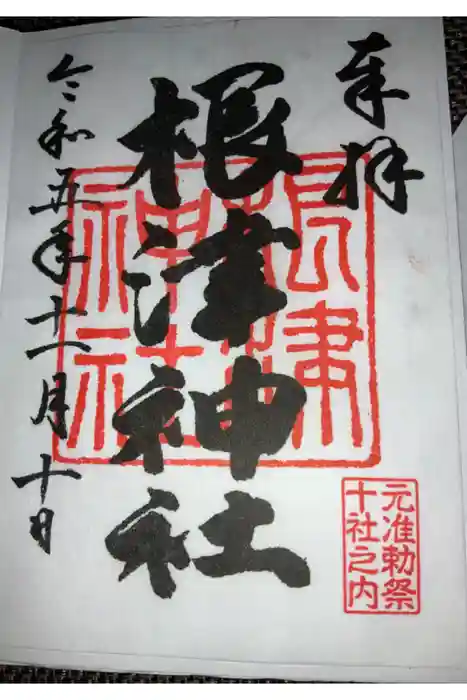 奉拝
根津神社
令和五年十一月十日
根津
神社
元准勅祭
十社之内